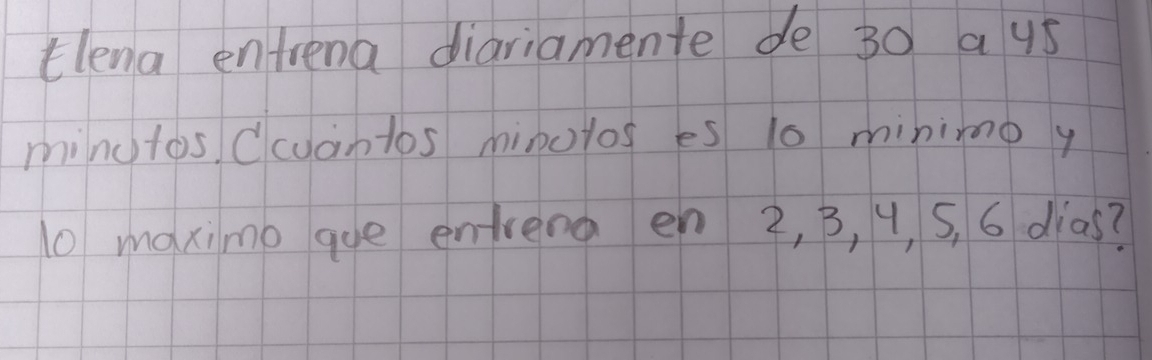 Elena entrena diariamente de 30 a 45
minutos. ¿cuántos minutos es lo minimo y
lo maximo que entrena en 2, 3, 4, 5, 6 dias?